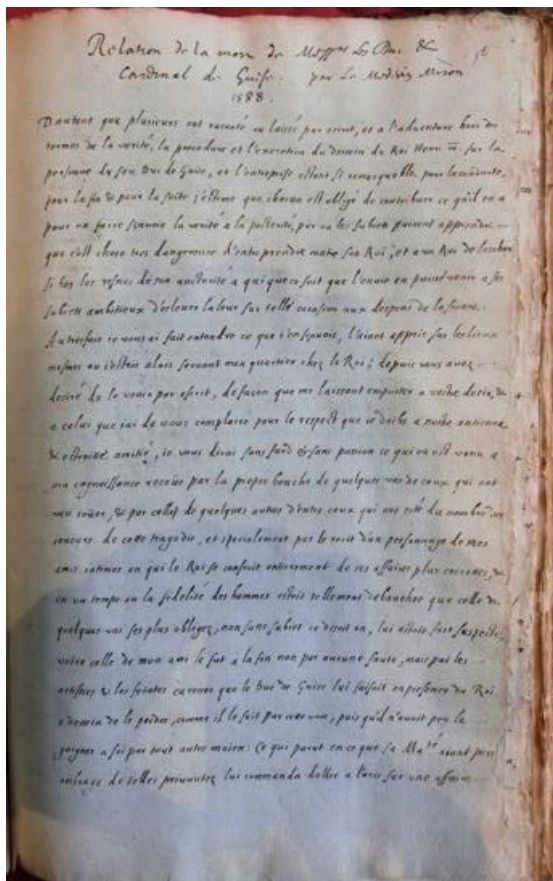 Relation de la mort de Messrs Les Duc &
Cardinal de Guise. par Le Medecin Miron
1588.
D'autant que plusieurs ont raconté ou laissé par escrit, et a l'adventure hors des
termes de la verité, la procedure et l'execution du dessein du Roi Henri III. sur la
personne du feu Duc de Guise, et l'entreprise estant si remarquable pour la conduite,
pour la fin & pour la suite; j'estime que chacun est obligé de contribuer ce qu'il en a
pour en faire sçavoir la verité a la posterité, par ou les subiets puissent apprendre
que c'est chose tres dangereuse d'entreprendre contre son Roi; et a un Roi de lascher
si bas les resnes de son auctorité a qui que ce soit que l'envie en puisse venir a ses
subiets ambitieux d'eslever la leur sur telle occasion aux despens de la sienne.
Autresfois ie vous ai fait entendre ce que i'en sçavois, l'aiant appris sur les lieux
mesmes ou i'estois alors servant mon quartier chez le Roi; depuis vous avez
desiré de le veoir par escrit, de façon que me laissant emporter a vostre desir, &
a celui que i'ai de vous complaire pour le respect que ie doibs a nostre antienne
& estroite amitié, ie vous dirai sans fard & sans passion ce qui en est venu a
ma cognoissance receüe par la propre bouche de quelques uns de ceux qui ont
veu ioüer, & par celles de quelques autres d'entre ceux qui ont esté du nombre des
ioueurs de cette tragedie, et specialement par le recit d'un personnage de mes
amis intimes en qui le Roi se confioit entierement de ses affaires plus secrettes, &
en un temps ou la fidelité des hommes estoit tellement debauchée que celle de
quelques uns ses plus obligez, non sans subiet ce disoit on, lui estoit fort suspecte,
voire celle de mon ami le fut a la fin non par aucune faute, mais par les
artifices & les feintes caresses que le Duc de Guise lui faisoit en presence du Roi
a dessein de le perdre, comme il le fit par cette voie, puis qu'il n'avoit peu le
gaigner a soi par tout autre moien: Ce qui parut en ce que sa Maté aiant pris
ombrage de telles privautez lui commanda d'aller a Paris sur une affaire